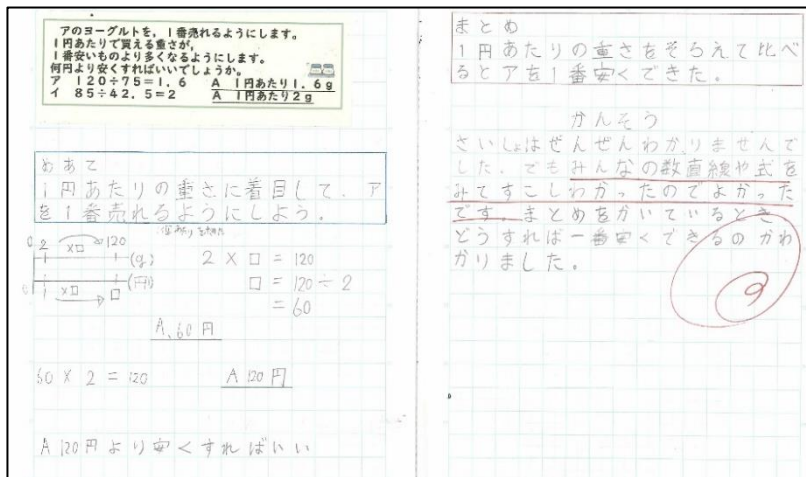 アのヨーグルトを，1番売れるようにします。
1円あたりで買える重さが，
1番安いものより多くなるようにします。
何円より安くすればいいでしょうか。
ア 120÷75＝1.6 A 1円あたり1.6g
イ 85÷42.5＝2 A 1円あたり2g
めあて
1円あたりの重さに着目して、ア
を1番売れるようにしよう。
0 2 ×□ 120
(g)
(円)
0 1 ×□ □
2 × □ = 120
□ = 120 ÷ 2
= 60
A. 60円
60 × 2 = 120 A 120円
A 120円より安くすればいい
まとめ
1円あたりの重さをそろえて比べ
るとアを1番安くできた。
かんそう
さいしょはぜんぜんわかりませんで
した。でもみんなの数直線や式を
みてすこしわかったのでよかった
です。まとめをかいているとき
どうすれば一番安くできるのかわ
かりました。